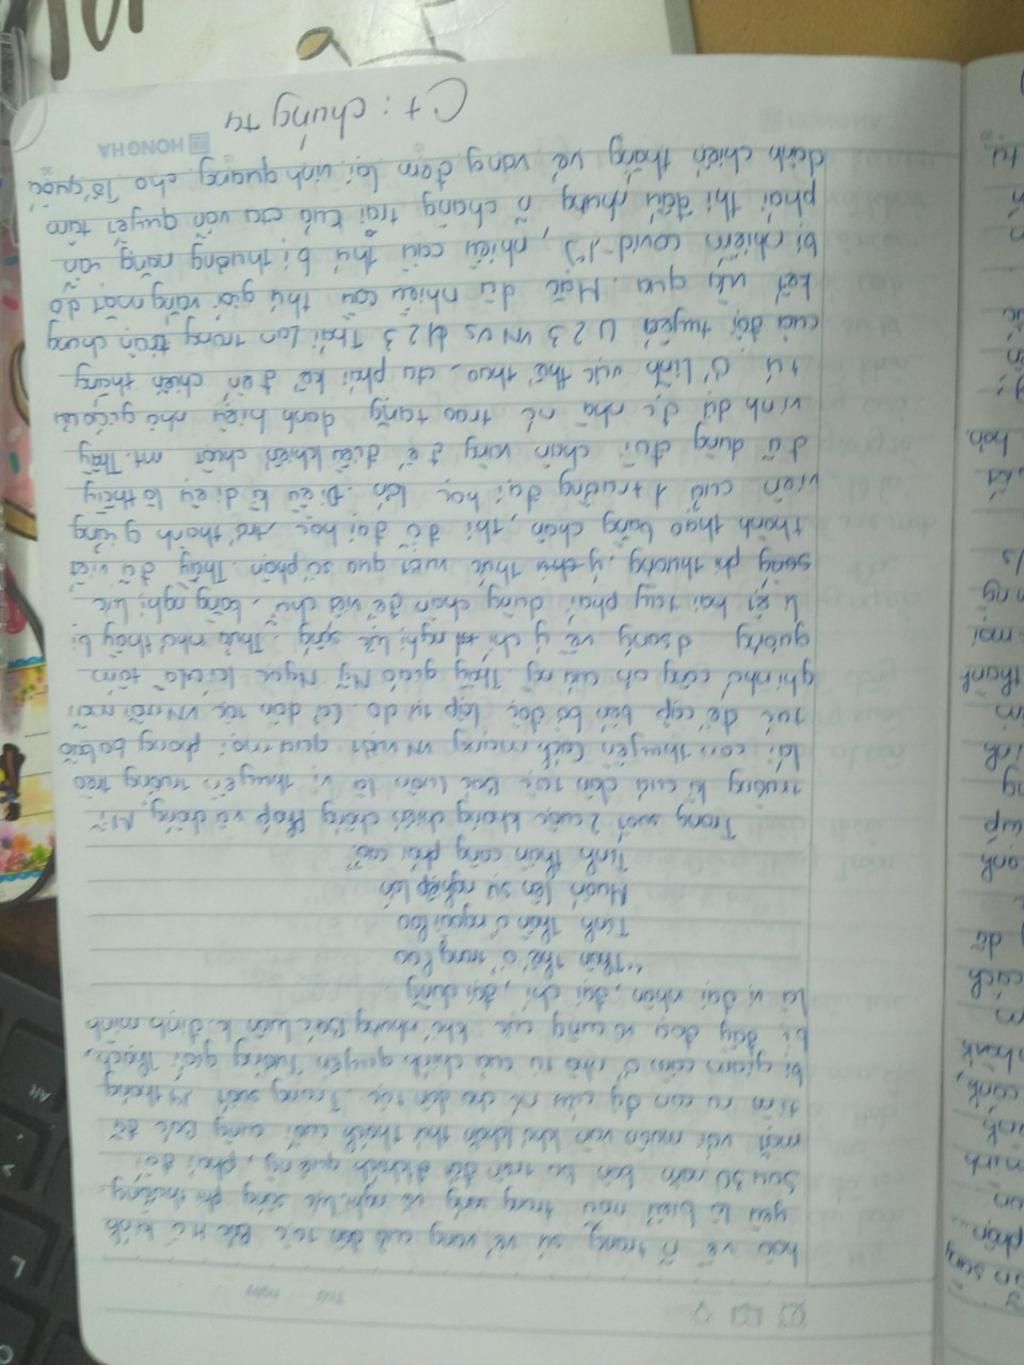 hào về trang sử vẻ vang của dân tộc. Bác Hồ kính
yêu là biểu trưng về nghị lực sống phi thường
sau 30 năm bôn ba trên đất khách quê người, phải đối
mặt với muôn vàn khó khăn thử thách cuối cùng Bác đã
tìm ra con đg cứu nc cho dân tộc. Trong suốt 14 tháng
bị giam cầm ở nhà tù của chính quyền Tưởng giới Thạch,
bị đày đọa vô cùng cực khổ nhưng Bác luôn k. định mình
là vị đại nhân, đại chí, đại dũng.
"Thân thể ở trong lao
Tinh thần ở ngoài lao
Muốn lên sự nghiệp lớn
Tinh thần càng phải cao"
Trong suốt 2 cuộc kháng chiến chống Pháp và chống Mĩ,
trường kì của dân tộc, Bác luôn là vị thuyền trưởng
lái con thuyền cách mạng VN vượt qua mọi phong ba bão
táp để cập bến bờ độc lập tự do. Cả dân tộc VN mãi mãi
ghi nhớ công ơn của ng. Thầy giáo Ng Ngọc Kí là tấm
gương sáng về ý chí nghị lực sống. Thưở nhỏ thầy bị
liệt hai tay phải dùng chân để viết chữ. bằng nghị lực
sống phi thường, ý thức vượt qua số phận. Thầy đã viết
thành thạo bằng chân, thi đỗ đại học trở thành giảng
viên của 1 trường đại học lớn. Điều kì diệu là thầy
đã dùng đôi chân để điều khiển chiếc mt. Thầy
vinh dự đc nhà nc trao tặng danh hiệu nhà giáo ưu
tú. Ở lĩnh vực thể thao, ta phải kể đến chiến thắng
của đội tuyển U23 VN vs U23 Thái Lan trong trận chung
kết vừa qua. Mặc dù nhiều cầu thủ giỏi vắng mặt do
bị nhiễm covid-19, nhiều cầu thủ bị thương nặng vẫn
phải thi đấu nhưng chàng trai của ta vẫn quyết tâm
dành chiến thắng vẻ vang đem lại vinh quang cho Tổ quốc
HONG HA
Ct: chứng tỏ